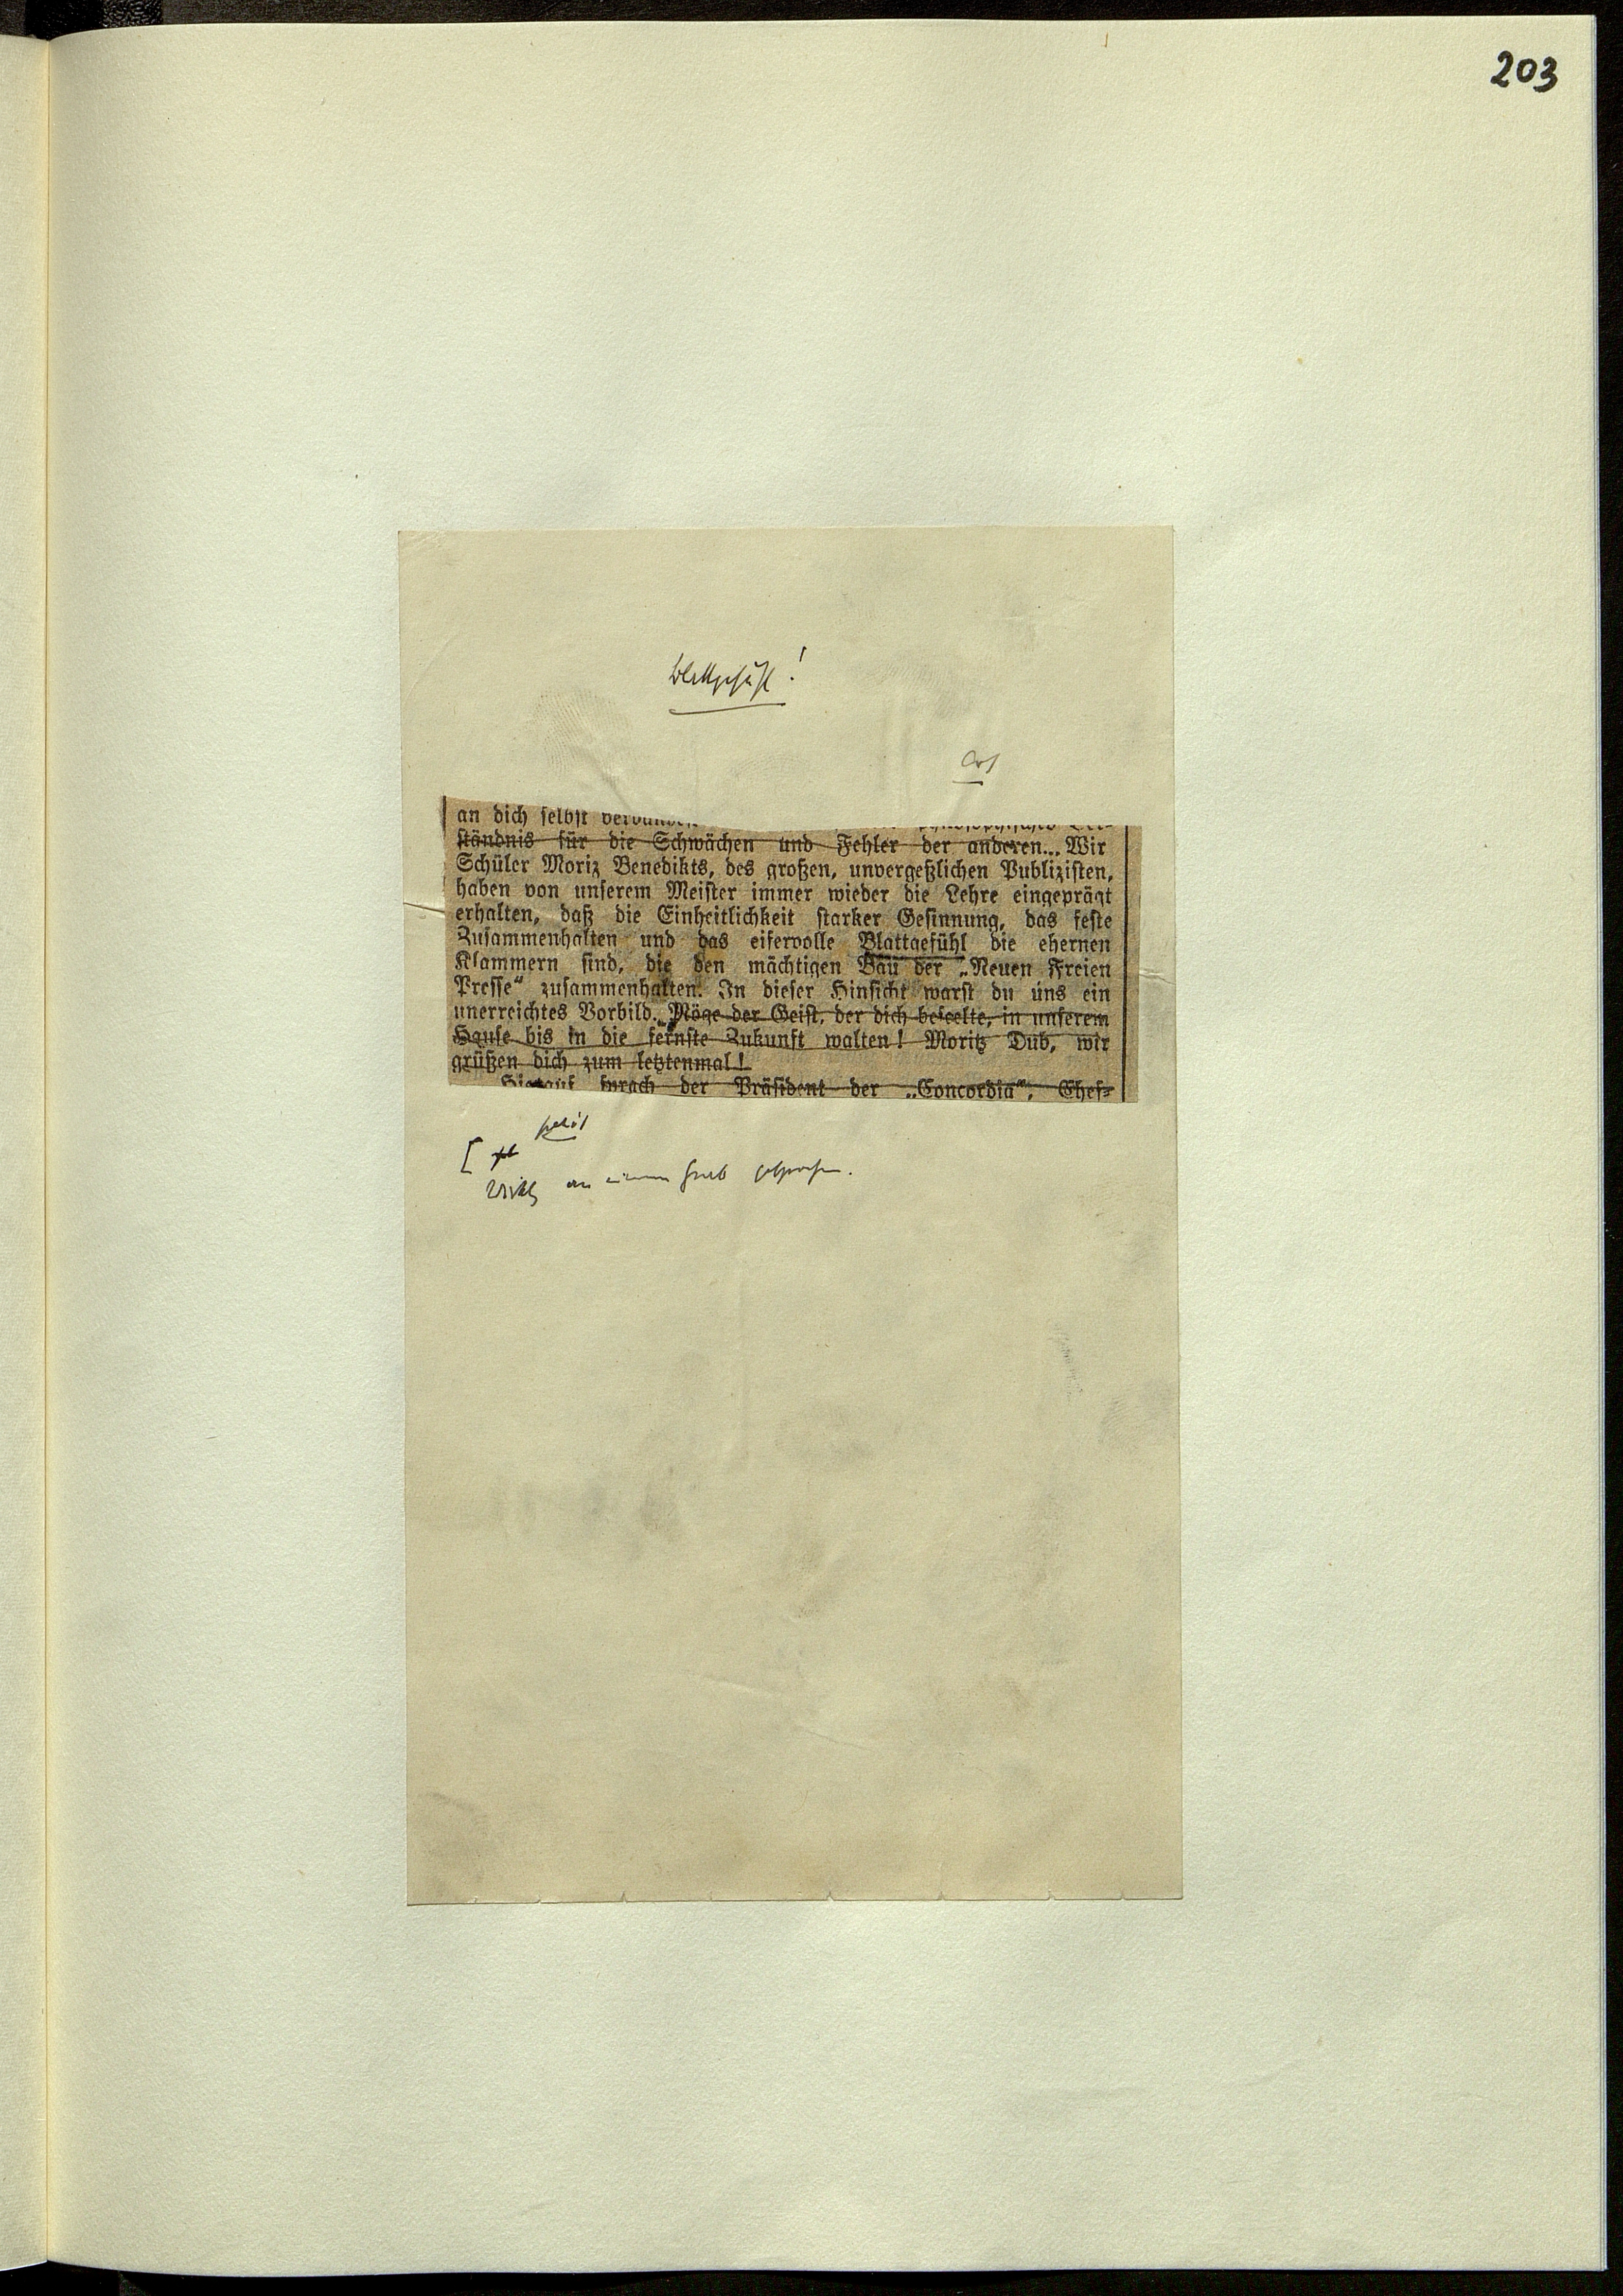 203
Blattgefühl!
an dich selbst
ständnis für die Schwächen und Fehler der anderen... Wir
Schüler Moriz Benedikts, des großen, unvergeßlichen Publizisten,
haben von unserem Meister immer wieder die Lehre eingeprägt
erhalten, daß die Einheitlichkeit starker Gesinnung, das feste
Zusammenhalten und das eifervolle Blattgefühl die ehernen
Klammern sind, die den mächtigen Bau der „Neuen Freien
Presse“ zusammenhalten. In dieser Hinsicht warst du uns ein
unerreichtes Vorbild. Möge der Geist, der dich beseelte, in unserem
Hause bis in die fernste Zukunft walten! Moritz Dub, wir
grüßen dich zum letztenmal!
Hierauf sprach der Präsident der „Concordia“, Chef-
petit
[
an einem Grab gesprochen.